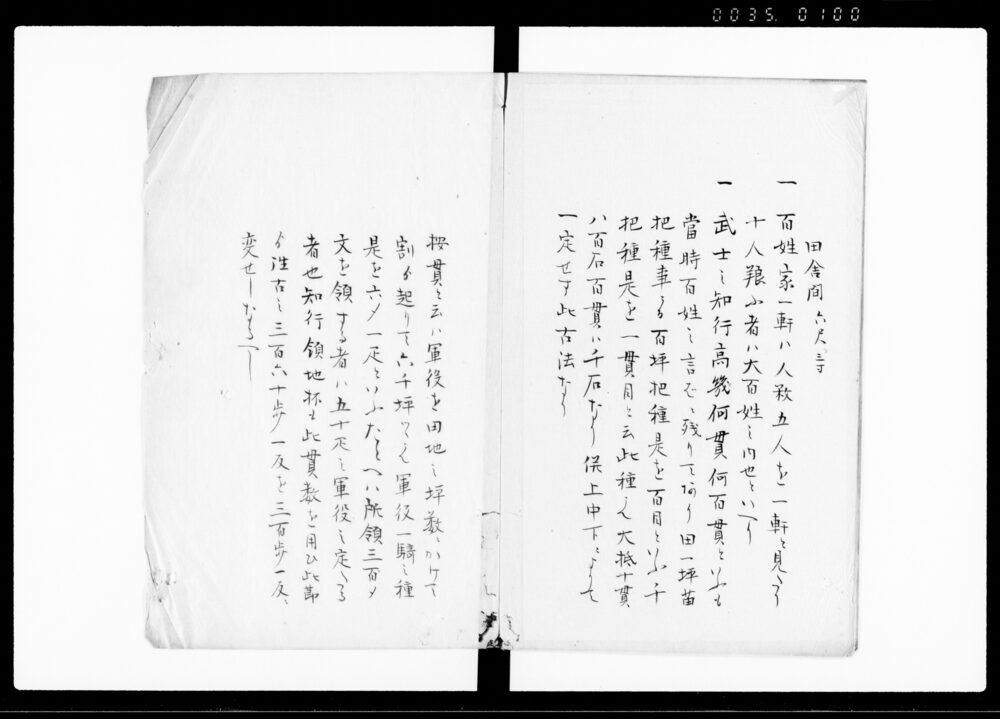 0035. 0100
田舎間六尺三寸
一 百姓家一軒ハ人数五人を一軒と見たり
十人賑ふ者ハ大百姓之内也といへり
一 武士之知行高幾何貫何百貫といふも
當時百姓之言葉ニ残りてあり田一坪苗
把種事ゟ百坪把種是を百目といふ千
把種是を一貫目と云此種ニ而大抵十貫
八百石百貫ハ千石なり 併上中下によりて
一定せす此古法なり
按貫と云ハ軍役を田地之坪数ニかけて
割ゟ起りて六千坪ニ而軍役一騎之種
是を六〆一疋といふたとへハ所領三百〆
文を領する者ハ五十疋之軍役之定たる
者也知行領地抔も此貫数を用ひ此節
ゟ往古之三百六十歩一反を三百歩一反ニ
変せしなるへし